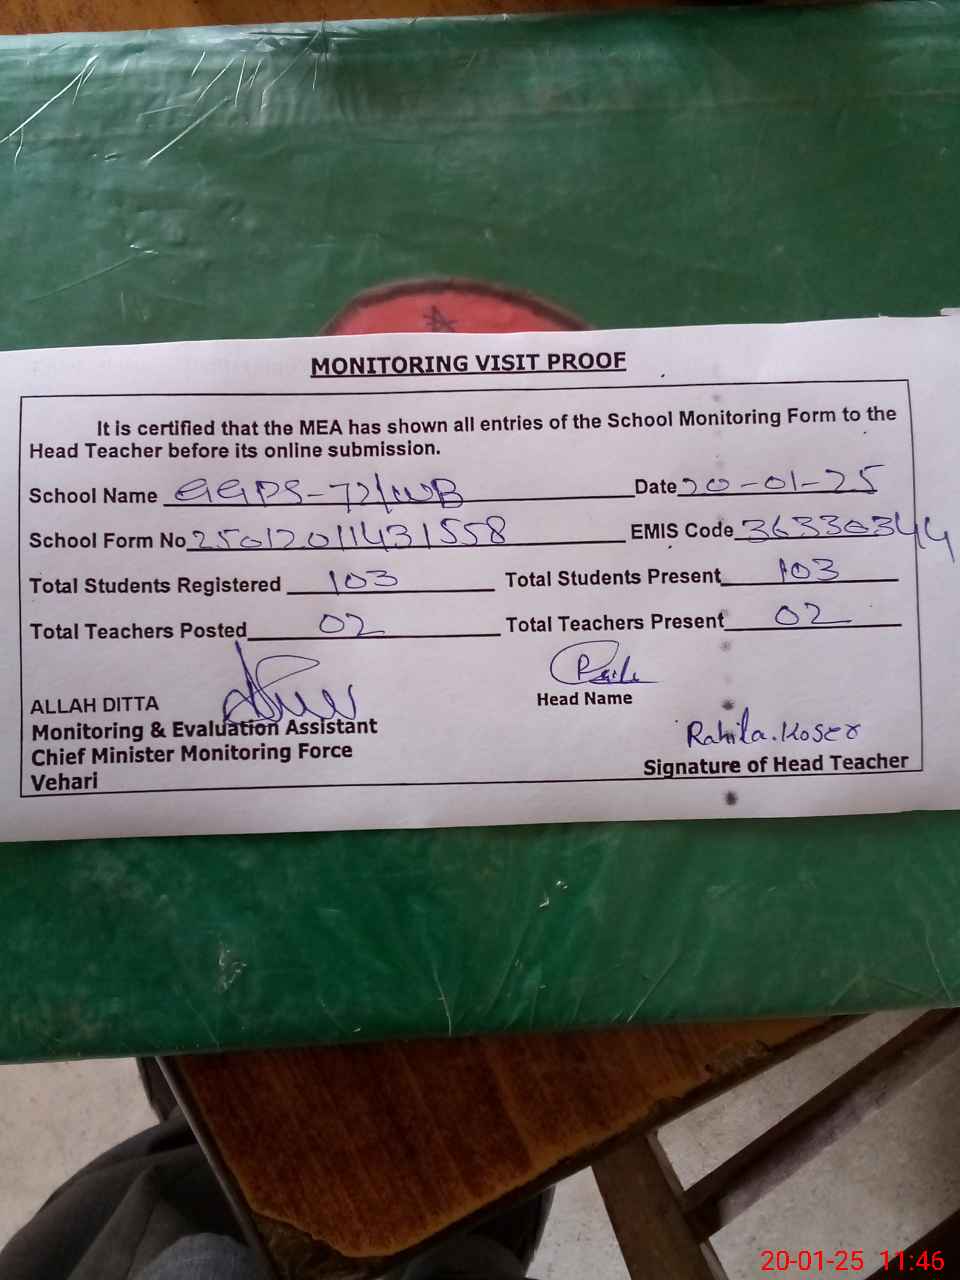 MONITORING VISIT PROOF
It is certified that the MEA has shown all entries of the School Monitoring Form to the
Head Teacher before its online submission.
School Name GGPS-72/WB Date 20-01-25
School Form No 25012011431558 EMIS Code 36330344
Total Students Registered 103 Total Students Present 103
Total Teachers Posted 02 Total Teachers Present 02
ALLAH DITTA Head Name
Monitoring & Evaluation Assistant
Chief Minister Monitoring Force Rahila.Koser
Vehari Signature of Head Teacher
20-01-25 11:46